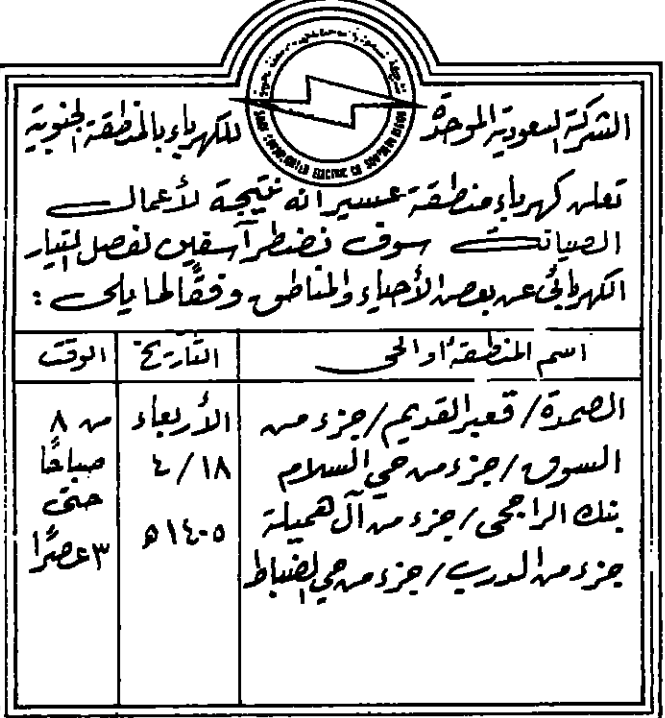 الشركة السعودية الموحدة للكهرباء بالمنطقة الجنوبية
تعلن كهرباء منطقة عسير انه نتيجة لأعمال
الصيانة سوف نضطر آسفين لفصل التيار
الكهربائي عن بعض الأحياء والمناطق وفقًا لما يلي :
اسم المنطقة او الحي التاريخ الوقت
الصمدة / قعير القديم / جزء من الأربعاء من ٨
السوق / جزء من حي السلام ١٨ / ٤ صباحًا
بنك الراجحي / جزء من آل هميلة ١٤٠٥ ه حتى
جزء من الدرب / جزء من حي الضباط ٣ عصرًا